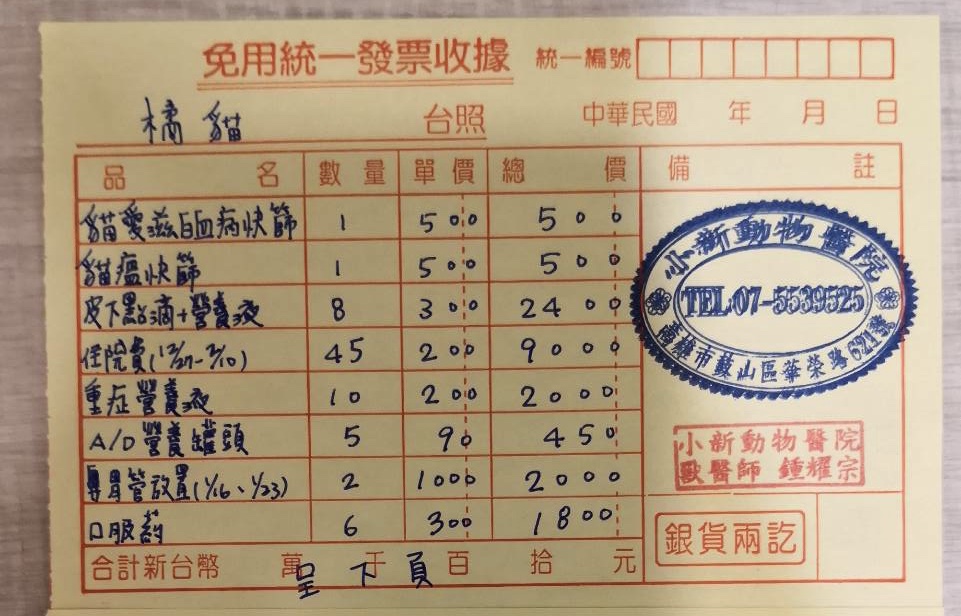 免用統一發票收據 統一編號
橘貓 台照 中華民國 年 月 日
品名 數量 單價 總價 備註
貓愛滋白血病快篩 1 500 500
貓瘟快篩 1 500 500
皮下點滴+營養液 8 300 2400
住院費(12/27-2/10) 45 200 9000
重症營養液 10 200 2000
A/D營養罐頭 5 90 450
鼻胃管放置(1/16、1/23) 2 1000 2000
口服葯 6 300 1800
合計新台幣 萬 千 百 拾 元
呈下頁
小新動物醫院
TEL:07-5539525
高雄市鼓山區華榮路621號
小新動物醫院
獸醫師 鍾耀宗
銀貨兩訖